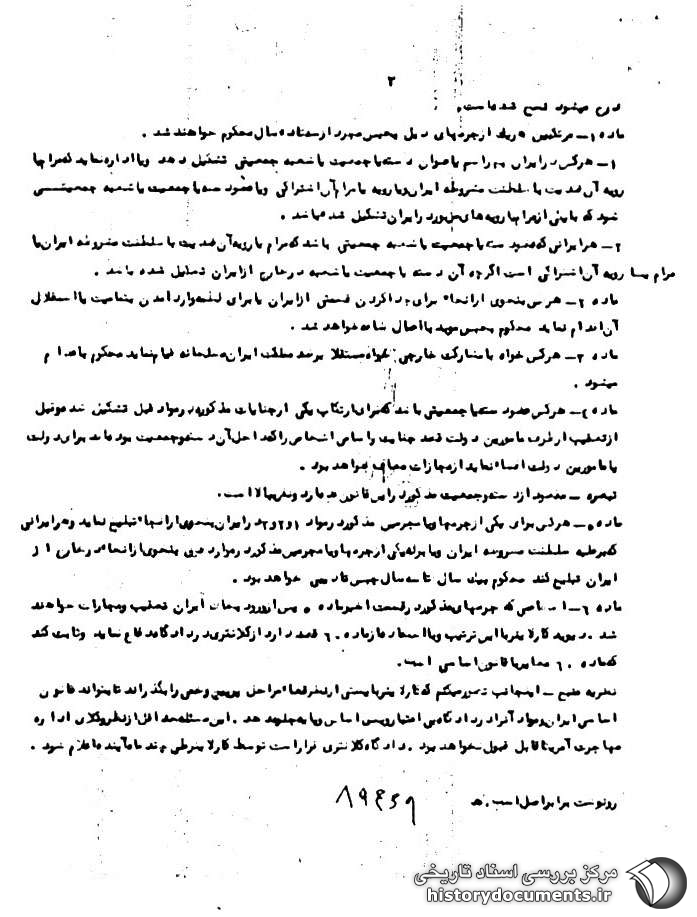 ۲
درج میشود نسخ شده است.
ماده ۱ـ مرتکبین هریک از جرمهای ذیل بحبس مجرد از سه تا ده سال محکوم خواهند شد.
۱ـ هرکس در ایران بهر اسم یا عنوان دسته یا جمعیت یا شعبه جمعیتی تشکیل دهد و یا اداره نماید که مرام یا
رویه آن ضدیت با سلطنت مشروطه ایران و یا رویه یا مرام آن اشتراکی و یا عضو دسته یا جمعیت یا شعبه جمعیتی
شود که با یکی از مرام یا رویه‌های مزبور در ایران تشکیل شده باشد.
۲ـ هر ایرانی که عضو دسته یا جمعیت یا شعبه جمعیتی باشد که مرام یا رویه آن ضدیت با سلطنت مشروطه ایران یا
مرام یا رویه آن اشتراکی است اگرچه آن دسته یا جمعیت یا شعبه در خارج از ایران تشکیل شده باشد.
ماده ۲ـ هرکس بنحوی از انحاء برای جدا کردن قسمتی از ایران یا برای لطمه وارد آمدن بتمامیت یا استقلال
آن اقدام نماید محکوم بحبس موبد با اعمال شاقه خواهد شد.
ماده ۳ـ هرکس خواه با مشارکت خارجی خواه مستقلا بر ضد مملکت ایران مسلحانه قیام نماید محکوم باعدام
میشود.
ماده ۴ـ هرکس عضو دسته یا جمعیتی باشد که برای ارتکاب یکی از جنایات مذکوره در مواد قبل تشکیل شده و قبل
از تعقیب از طرف مامورین دولت قصد جنایت و اسامی اشخاصی را که داخل آن دسته و جمعیت بوده‌اند برای دولت
یا مامورین دولت افشاء نماید از مجازات معاف خواهد بود.
تبصره ـ مقصود از دسته و جمعیت مذکور در این قانون عده از دو نفر ببالا است.
ماده ۵ـ هرکس برای یکی از جرمها و یا مجرمین مذکور در مواد ۱ و ۲ و ۳ در ایران بنحوی از انحاء تبلیغ نماید و هر ایرانی
که بر علیه سلطنت مشروطه ایران و یا برله یکی از جرمها و یا مجرمین مذکور در موارد فوق بنحوی از انحاء در خارج از
ایران تبلیغ کند محکوم بیک سال تا سه سال حبس تادیبی خواهد بود.
ماده ۶ـ اشخاصی که جرمهای مذکور در قسمت اخیر ماده ۵ پس از ورود بخاک ایران تعقیب و مجازات خواهند
شد. دیوید کارلاینر با این ترتیب و با استفاده از ماده ۶۰ قصد دارد از کلانتری در دادگاه دفاع نماید و ثابت کند
که ماده ۶۰ مغایر با قانون اساسی است.
نظریه منبع ـ اینجانب تصور میکنم که کارلاینر بایستی از نقطه مراحل پرپیچ و خمی را بگذراند تا بتواند قانون
اساسی ایران و مواد آنرا در دادگاه بی اعتبار و بی اساس و یا بد جلوه دهد. این مسئله حداقل از نظر وکلای اداره
مهاجرت آمریکا قابل قبول نخواهد بود. دادگاه کلانتری قرار است توسط کارلاینر طی چند ماه آینده اعلام شود.
رونوشت برابر اصل است. هـ
مرکز بررسی اسناد تاریخی
historydocuments.ir